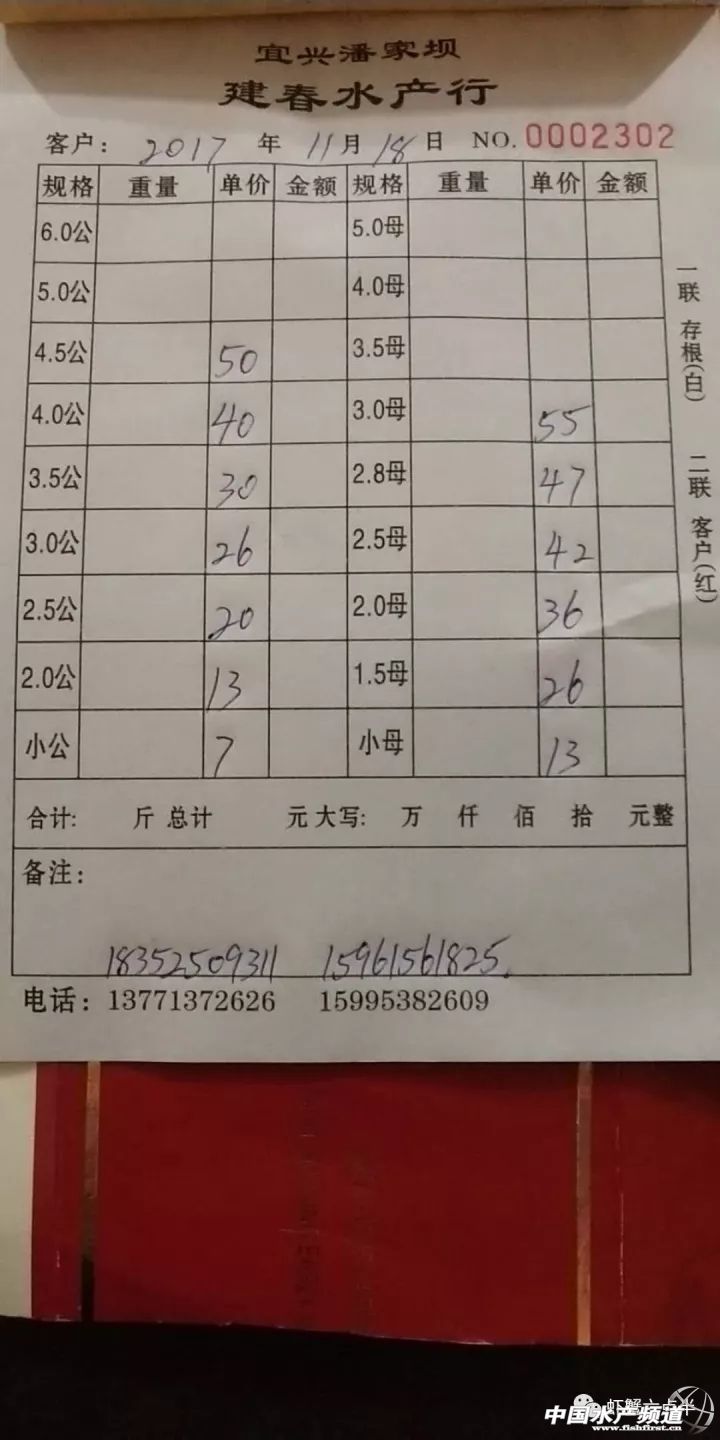 宜兴潘家坝
建春水产行
客户: 2017 年 11月 18日 NO. 0002302
规格 重量 单价 金额 规格 重量 单价 金额
6.0公 5.0母
5.0公 4.0母
4.5公 50 3.5母
4.0公 40 3.0母 55
3.5公 30 2.8母 47
3.0公 26 2.5母 42
2.5公 20 2.0母 36
2.0公 13 1.5母 26
小公 7 小母 13
合计: 斤 总计 元 大写: 万 仟 佰 拾 元整
备注:
18352509311 15961561825.
电话: 13771372626 15995382609
一联 存根(白) 二联 客户(红)
虾蟹六点半
中国水产频道
www.fishfirst.cn